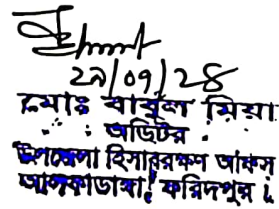 ২৯/০৭/২৪
মোঃ বাবুল মিয়া
অডিটর
উপজেলা হিসাবরক্ষণ অফিস
আলফাডাঙ্গা, ফরিদপুর।